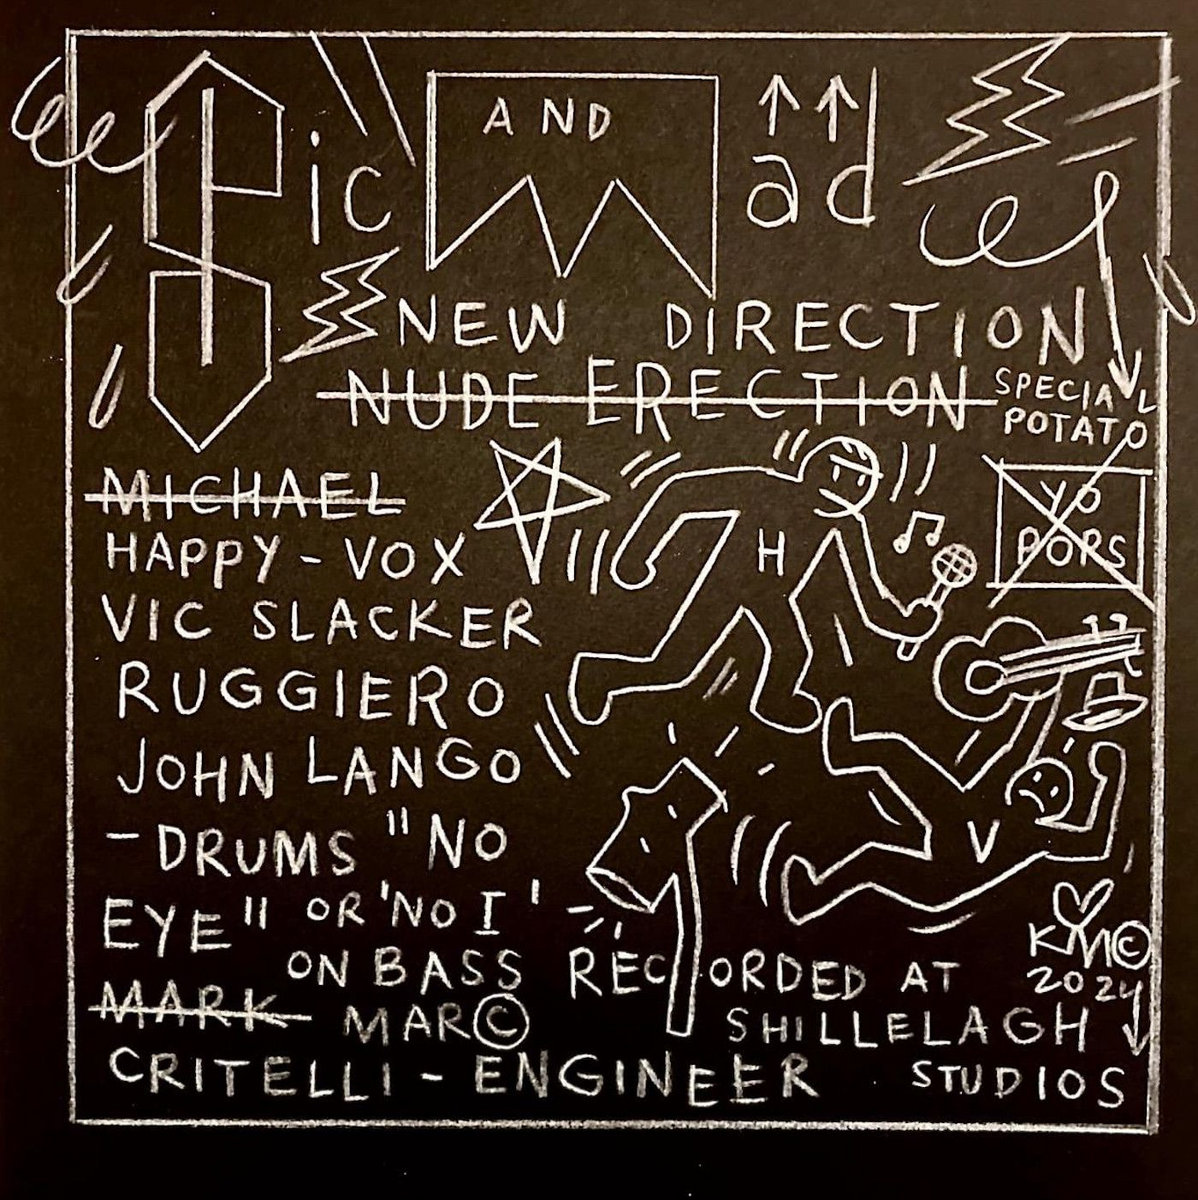 SPic AND Mad
NEW DIRECTION
NUDE ERECTION
SPECIAL
POTATO
YO
POPS
MICHAEL
HAPPY - VOX
VIC SLACKER
RUGGIERO
JOHN LANGO
- DRUMS "NO
EYE" OR 'NO I'
ON BASS
MARK MAR©
CRITELLI - ENGINEER
H
V
RECORDED AT
SHILLELAGH
STUDIOS
KM©
2024